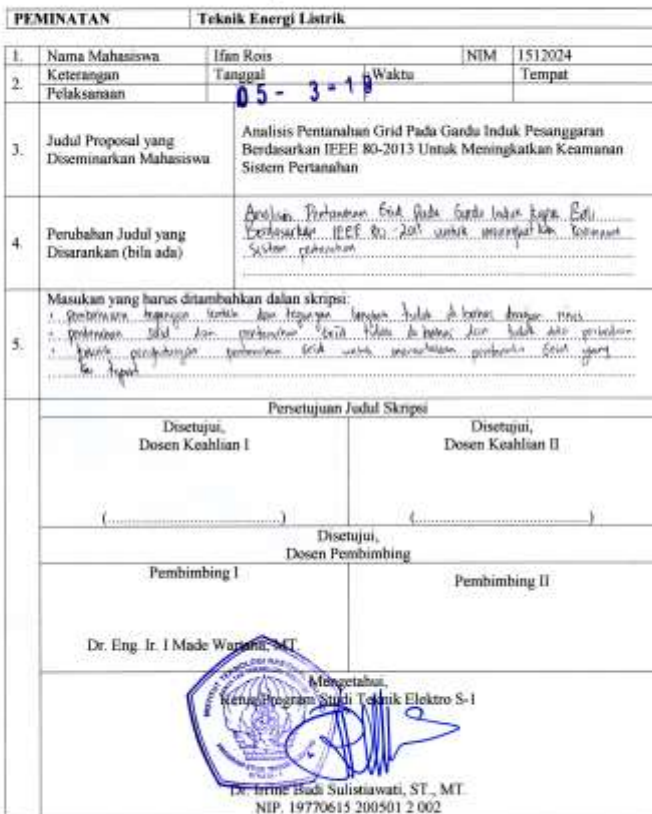 PEMINATAN Teknik Energi Listrik
1. Nama Mahasiswa Ifan Rois NIM 1512024
2. Keterangan Pelaksanaan Tanggal Waktu Tempat
05 - 3 - 19
3. Judul Proposal yang Diseminarkan Mahasiswa
Analisis Pentanahan Grid Pada Gardu Induk Pesanggaran
Berdasarkan IEEE 80-2013 Untuk Meningkatkan Keamanan
Sistem Pertanahan
4. Perubahan Judul yang Disarankan (bila ada)
Analisis Pentanahan Grid Pada Gardu Induk
Berdasarkan IEEE 80-2013 untuk
Sistem
5. Masukan yang harus ditambahkan dalan skripsi:
tegangan dan tegangan langkah tidak di bahas dengan
dan Grid tidak di bahas dan tidak ada
Grid untuk Grid yang
Persetujuan Judul Skripsi
Disetujui,
Dosen Keahlian I
Disetujui,
Dosen Keahlian II
(..............................) (..............................)
Disetujui,
Dosen Pembimbing
Pembimbing I Pembimbing II
Dr. Eng. Ir. I Made Wartana, MT.
Mengetahui,
Ketua Program Studi Teknik Elektro S-1
Dr. Irrine Budi Sulistiawati, ST., MT.
NIP. 19770615 200501 2 002